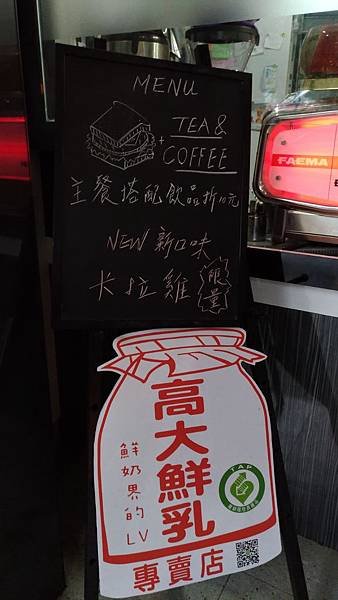 MENU
+
TEA &
COFFEE
主餐搭配飲品折10元
NEW 新口味
卡拉雞 限量
FAEMA
高大鮮乳
鮮奶界的LV
TAP
專賣店